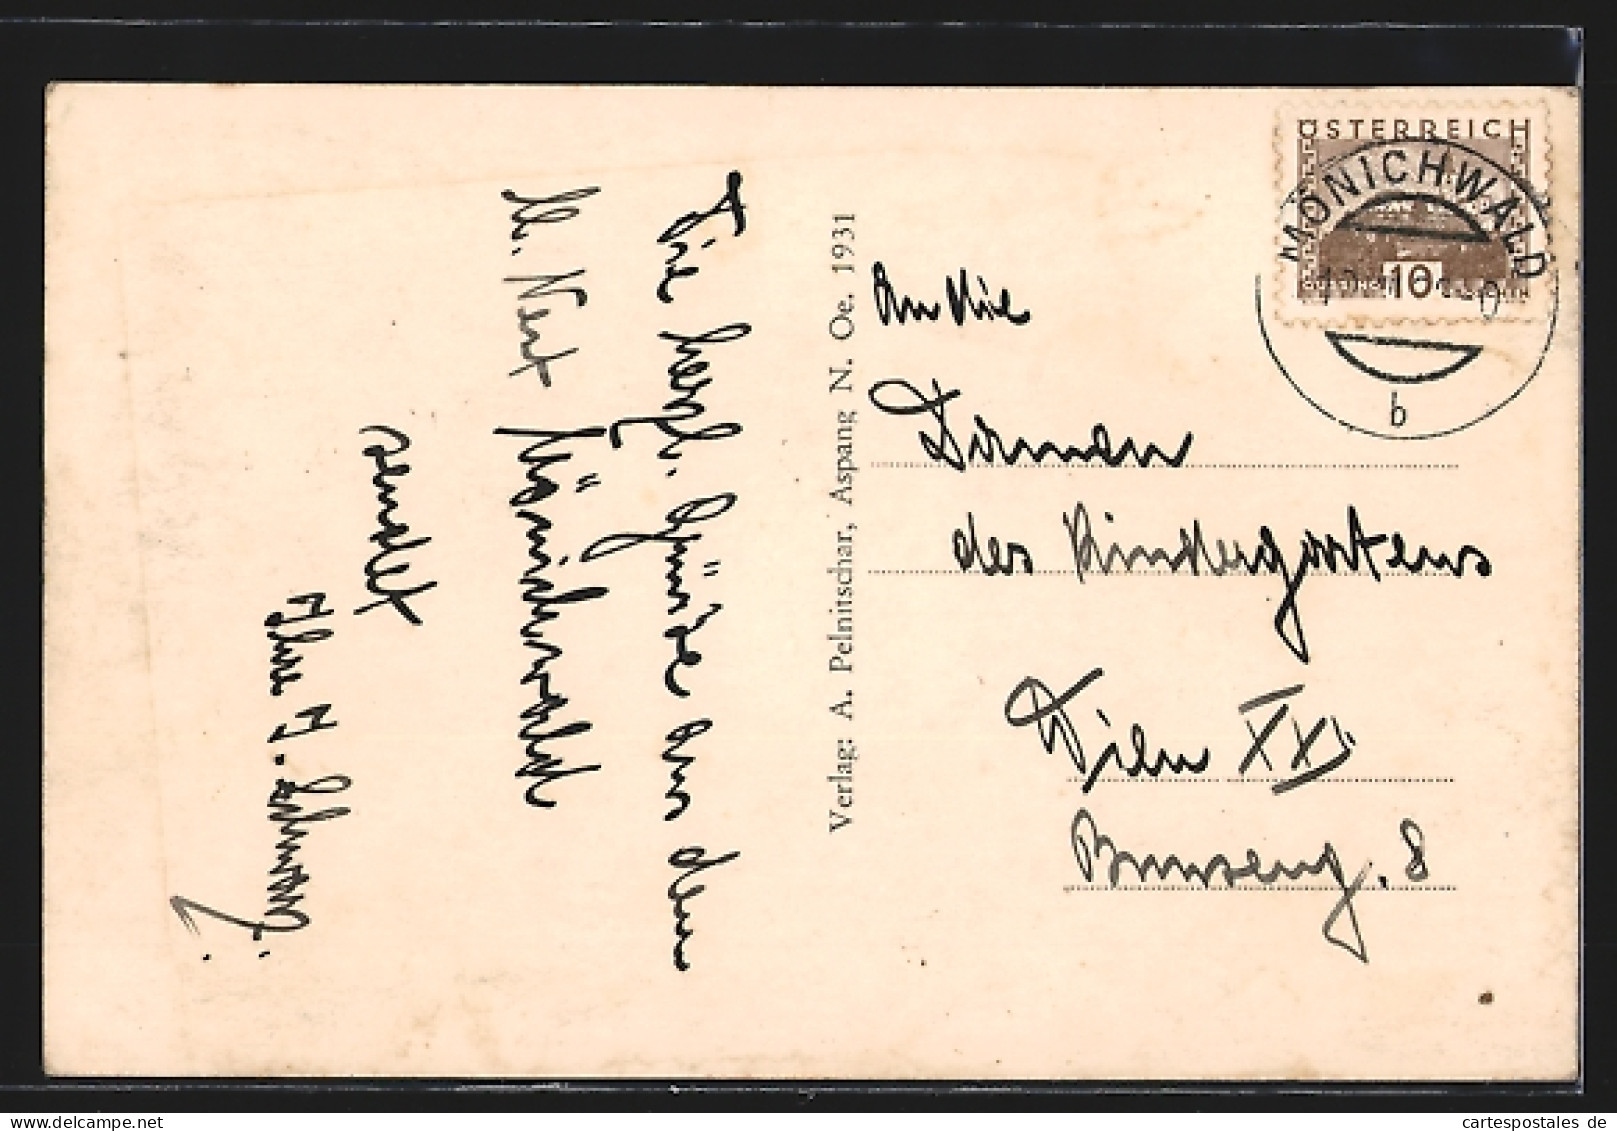 Die herzl. Grüße aus dem
Mönichwald
sendet
Verlag: A. Pelnitschar, Aspang N. Oe. 1931
ÖSTERREICH
MÖNICHWALD
10
b
An die
Damen
des Kindergartens
Wien XXI
Bunseng. 8
cartespostales de